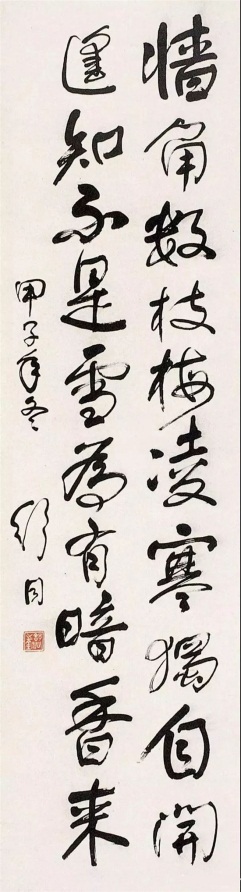 墙角数枝梅凌寒獨自開
遥知不是雪為有暗香来
甲子年冬
舒同